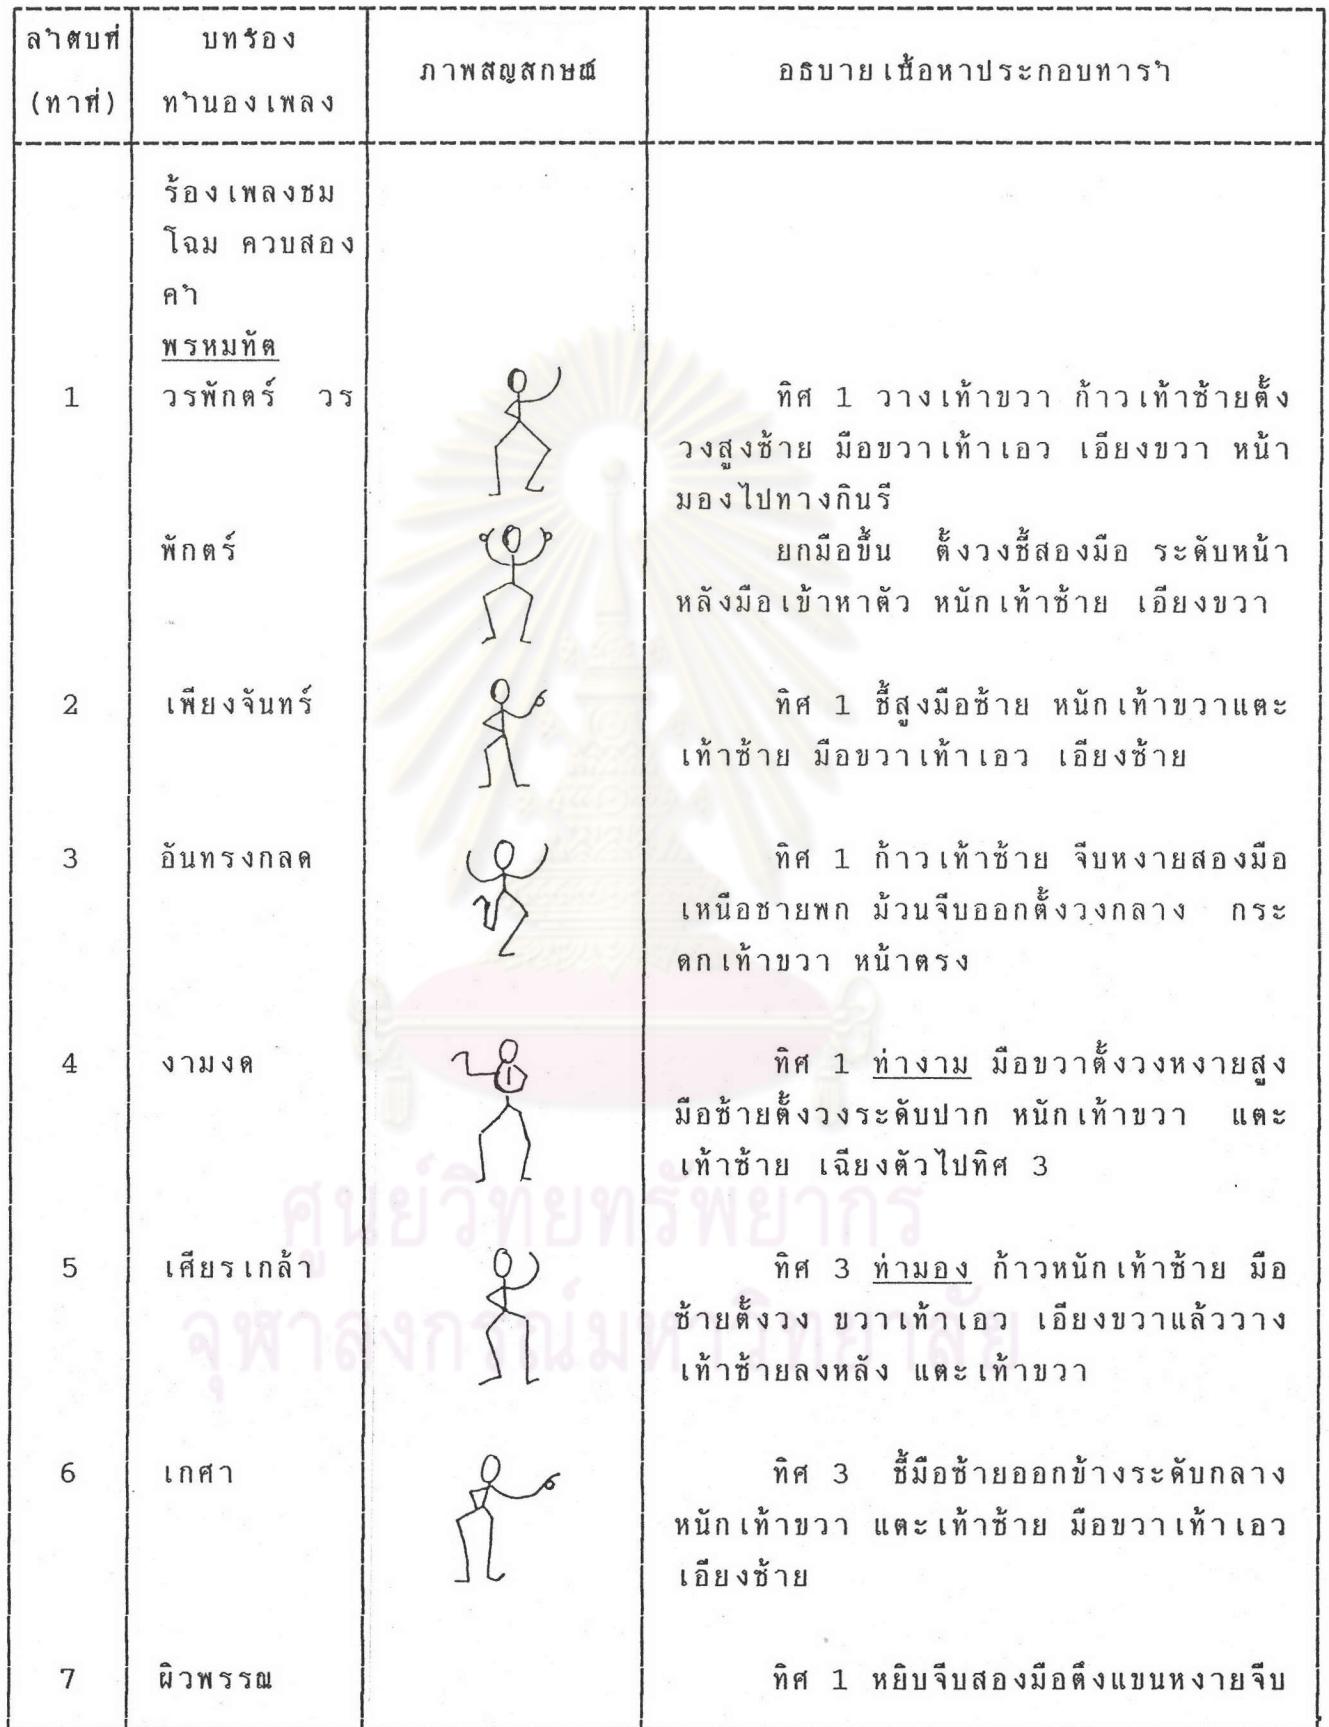 ลำดับที่ บทร้อง ภาพสัญลักษณ์ อธิบายเนื้อหาประกอบทารำ
(ทาที่) ทำนองเพลง
ร้องเพลงชม
โฉม ควบสอง
คำ
พรหมทัต
1 วรพักตร์ วร ทิศ 1 วางเท้าขวา ก้าวเท้าซ้ายตั้ง
วงสูงซ้าย มือขวาเท้าเอว เอียงขวา หน้า
มองไปทางกินรี
พักตร์ ยกมือขึ้น ตั้งวงชี้สองมือ ระดับหน้า
หลังมือเข้าหาตัว หนักเท้าซ้าย เอียงขวา
2 เพียงจันทร์ ทิศ 1 ชี้สูงมือซ้าย หนักเท้าขวาแตะ
เท้าซ้าย มือขวาเท้าเอว เอียงซ้าย
3 อันทรงกลด ทิศ 1 ก้าวเท้าซ้าย จีบหงายสองมือ
เหนือชายพก ม้วนจีบออกตั้งวงกลาง กระ
ดกเท้าขวา หน้าตรง
4 งามงด ทิศ 1 ท่างาม มือขวาตั้งวงหงายสูง
มือซ้ายตั้งวงระดับปาก หนักเท้าขวา แตะ
เท้าซ้าย เฉียงตัวไปทิศ 3
5 เศียรเกล้า ทิศ 3 ท่ามอง ก้าวหนักเท้าซ้าย มือ
ซ้ายตั้งวง ขวาเท้าเอว เอียงขวาแล้ววาง
เท้าซ้ายลงหลัง แตะเท้าขวา
6 เกศา ทิศ 3 ชี้มือซ้ายออกข้างระดับกลาง
หนักเท้าขวา แตะเท้าซ้าย มือขวาเท้าเอว
เอียงซ้าย
7 ผิวพรรณ ทิศ 1 หยิบจีบสองมือตึงแขนหงายจีบ
ศูนย์วิทยทรัพยากร
จุฬาลงกรณ์มหาวิทยาลัย